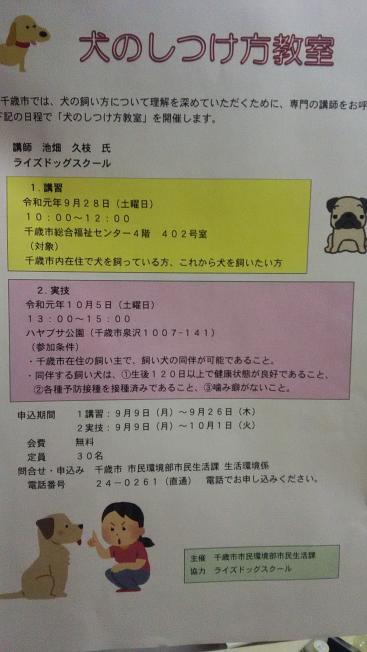 犬のしつけ方教室
千歳市では、犬の飼い方について理解を深めていただくために、専門の講師をお呼
下記の日程で「犬のしつけ方教室」を開催します。
講師 池畑 久枝 氏
ライズドッグスクール
１.講習
令和元年９月２８日（土曜日）
１０：００～１２：００
千歳市総合福祉センター４階 ４０２号室
（対象）
千歳市内在住で犬を飼っている方、これから犬を飼いたい方
２.実技
令和元年１０月５日（土曜日）
１３：００～１５：００
ハヤブサ公園（千歳市泉沢１００７-１４１）
（参加条件）
・千歳市在住の飼い主で、飼い犬の同伴が可能であること。
・同伴する飼い犬は、①生後１２０日以上で健康状態が良好であること、
②各種予防接種を接種済みであること、③噛み癖がないこと。
申込期間 １講習：９月９日（月）～９月２６日（木）
２実技：９月９日（月）～１０月１日（火）
会費 無料
定員 ３０名
問合せ・申込み 千歳市 市民環境部市民生活課 生活環境係
電話番号 ２４－０２６１（直通） 電話でお申し込みください。
主催 千歳市市民環境部市民生活課
協力 ライズドッグスクール